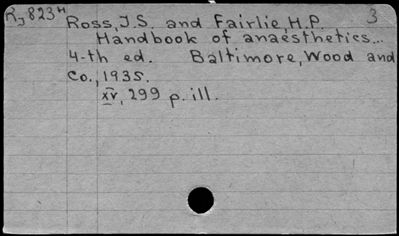 R,823H Ross, J.S. and Fairlie, H.P. 3
Handbook of anaesthetics...
4-th ed. Baltimore, Wood and
Co., 1935.
xv, 299 p. ill.